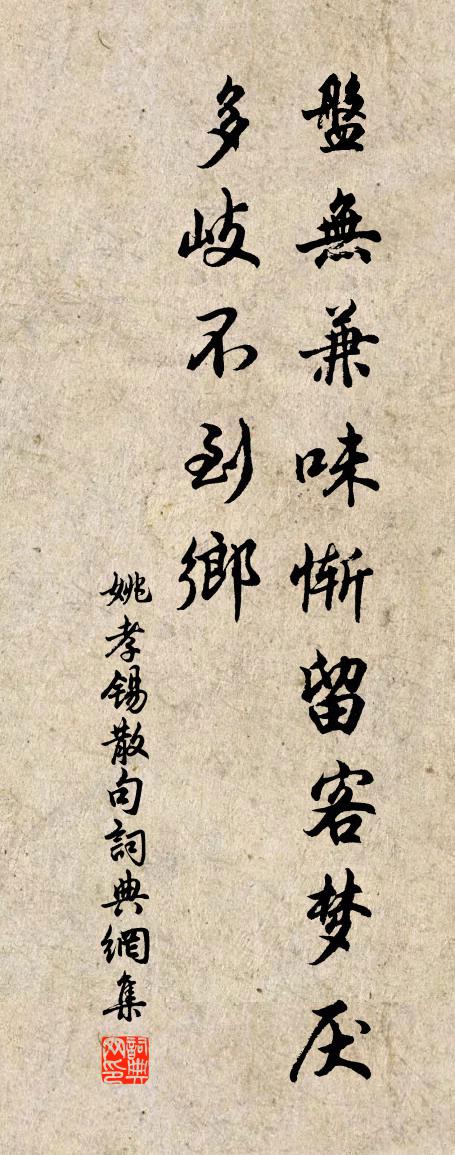 盤無兼味慚留客梦厌
多岐不到鄉
姚孝锡散句詞典網集
詞典网印